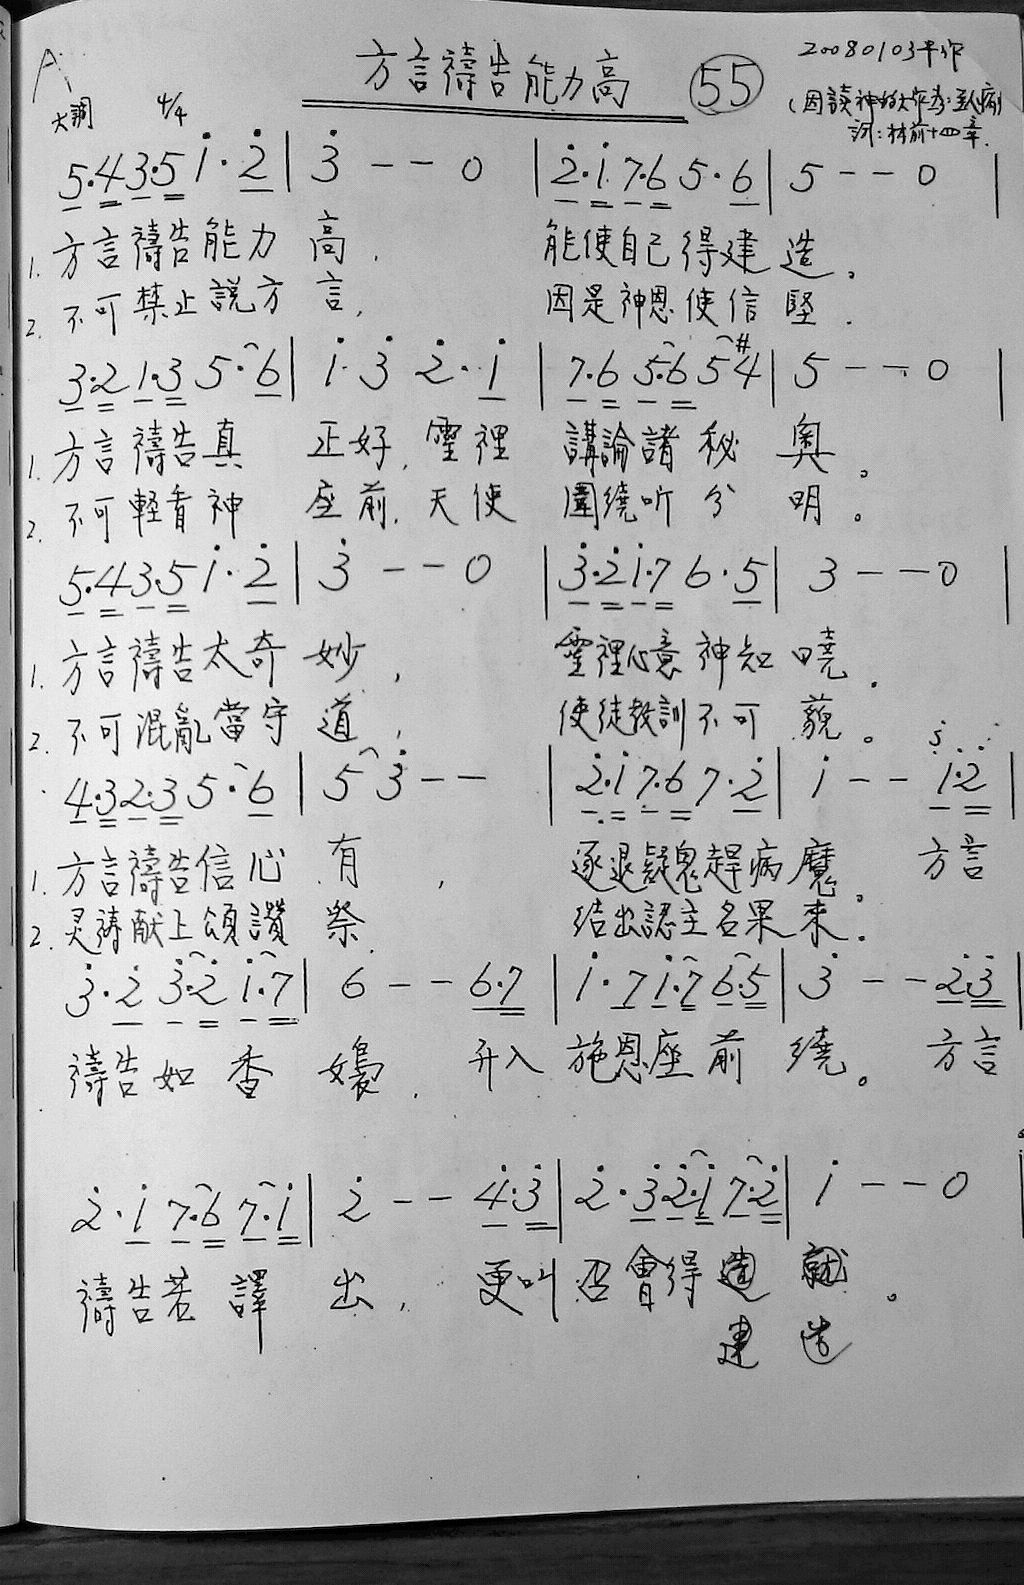 方言禱告能力高 55
20080103半作
A大調 4/4
(因讀神的大作為:醫病)
詞:林前十四章.
5.4 3.5 i.2̇ | 3̇ - - 0 | 2̇.i 7.6 5.6 | 5 - - 0 |
1.方言禱告能力高, 能使自己得建造。
2.不可禁止說方言, 因是神恩使信堅.
3.2 1.3 5.6 | i.3̇ 2̇.i | 7.6 5.6 5#4 | 5 - - 0 |
1.方言禱告真正好,靈裡講論諸秘奧。
2.不可輕看神座前,天使圍繞听分明。
5.4 3.5 i.2̇ | 3̇ - - 0 | 3̇.2̇ i.7 6.5 | 3 - - 0 |
1.方言禱告太奇妙, 靈裡心意神知曉.
2.不可混亂當守道, 使徒教訓不可藐。
4.3 2.3 5.6 | 5 3̇ - - | 2̇.i 7.6 7.2̇ | i - - i.2̇ |
1.方言禱告信心有, 逐退疑鬼趕病魔。 方言
2.灵禱献上頌讚祭. 结出認主名果来.
3̇.2̇ 3̇.2̇ i.7 | 6 - - 6.7 | i.7 i.7 6.5 | 3̇ - - 2̇.3̇ |
禱告如香裊, 升入施恩座前繞。 方言
2̇.i 7.6 7.i | 2̇ - - 4̇.3̇ | 2̇.3̇ 2̇.i 7.2̇ | i - - 0
禱告若譯出, 更叫召會得造就。
建造